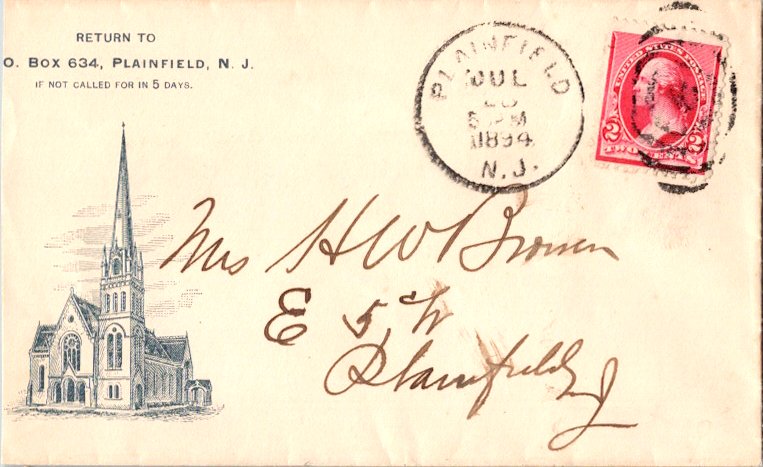 RETURN TO
O. BOX 634, PLAINFIELD, N. J.
IF NOT CALLED FOR IN 5 DAYS.
PLAINFIELD
JUL
PM
1894
N.J.
UNITED STATES POSTAGE
2 2
TWO CENTS
Mrs H W Brown
E 5th
Plainfield
J